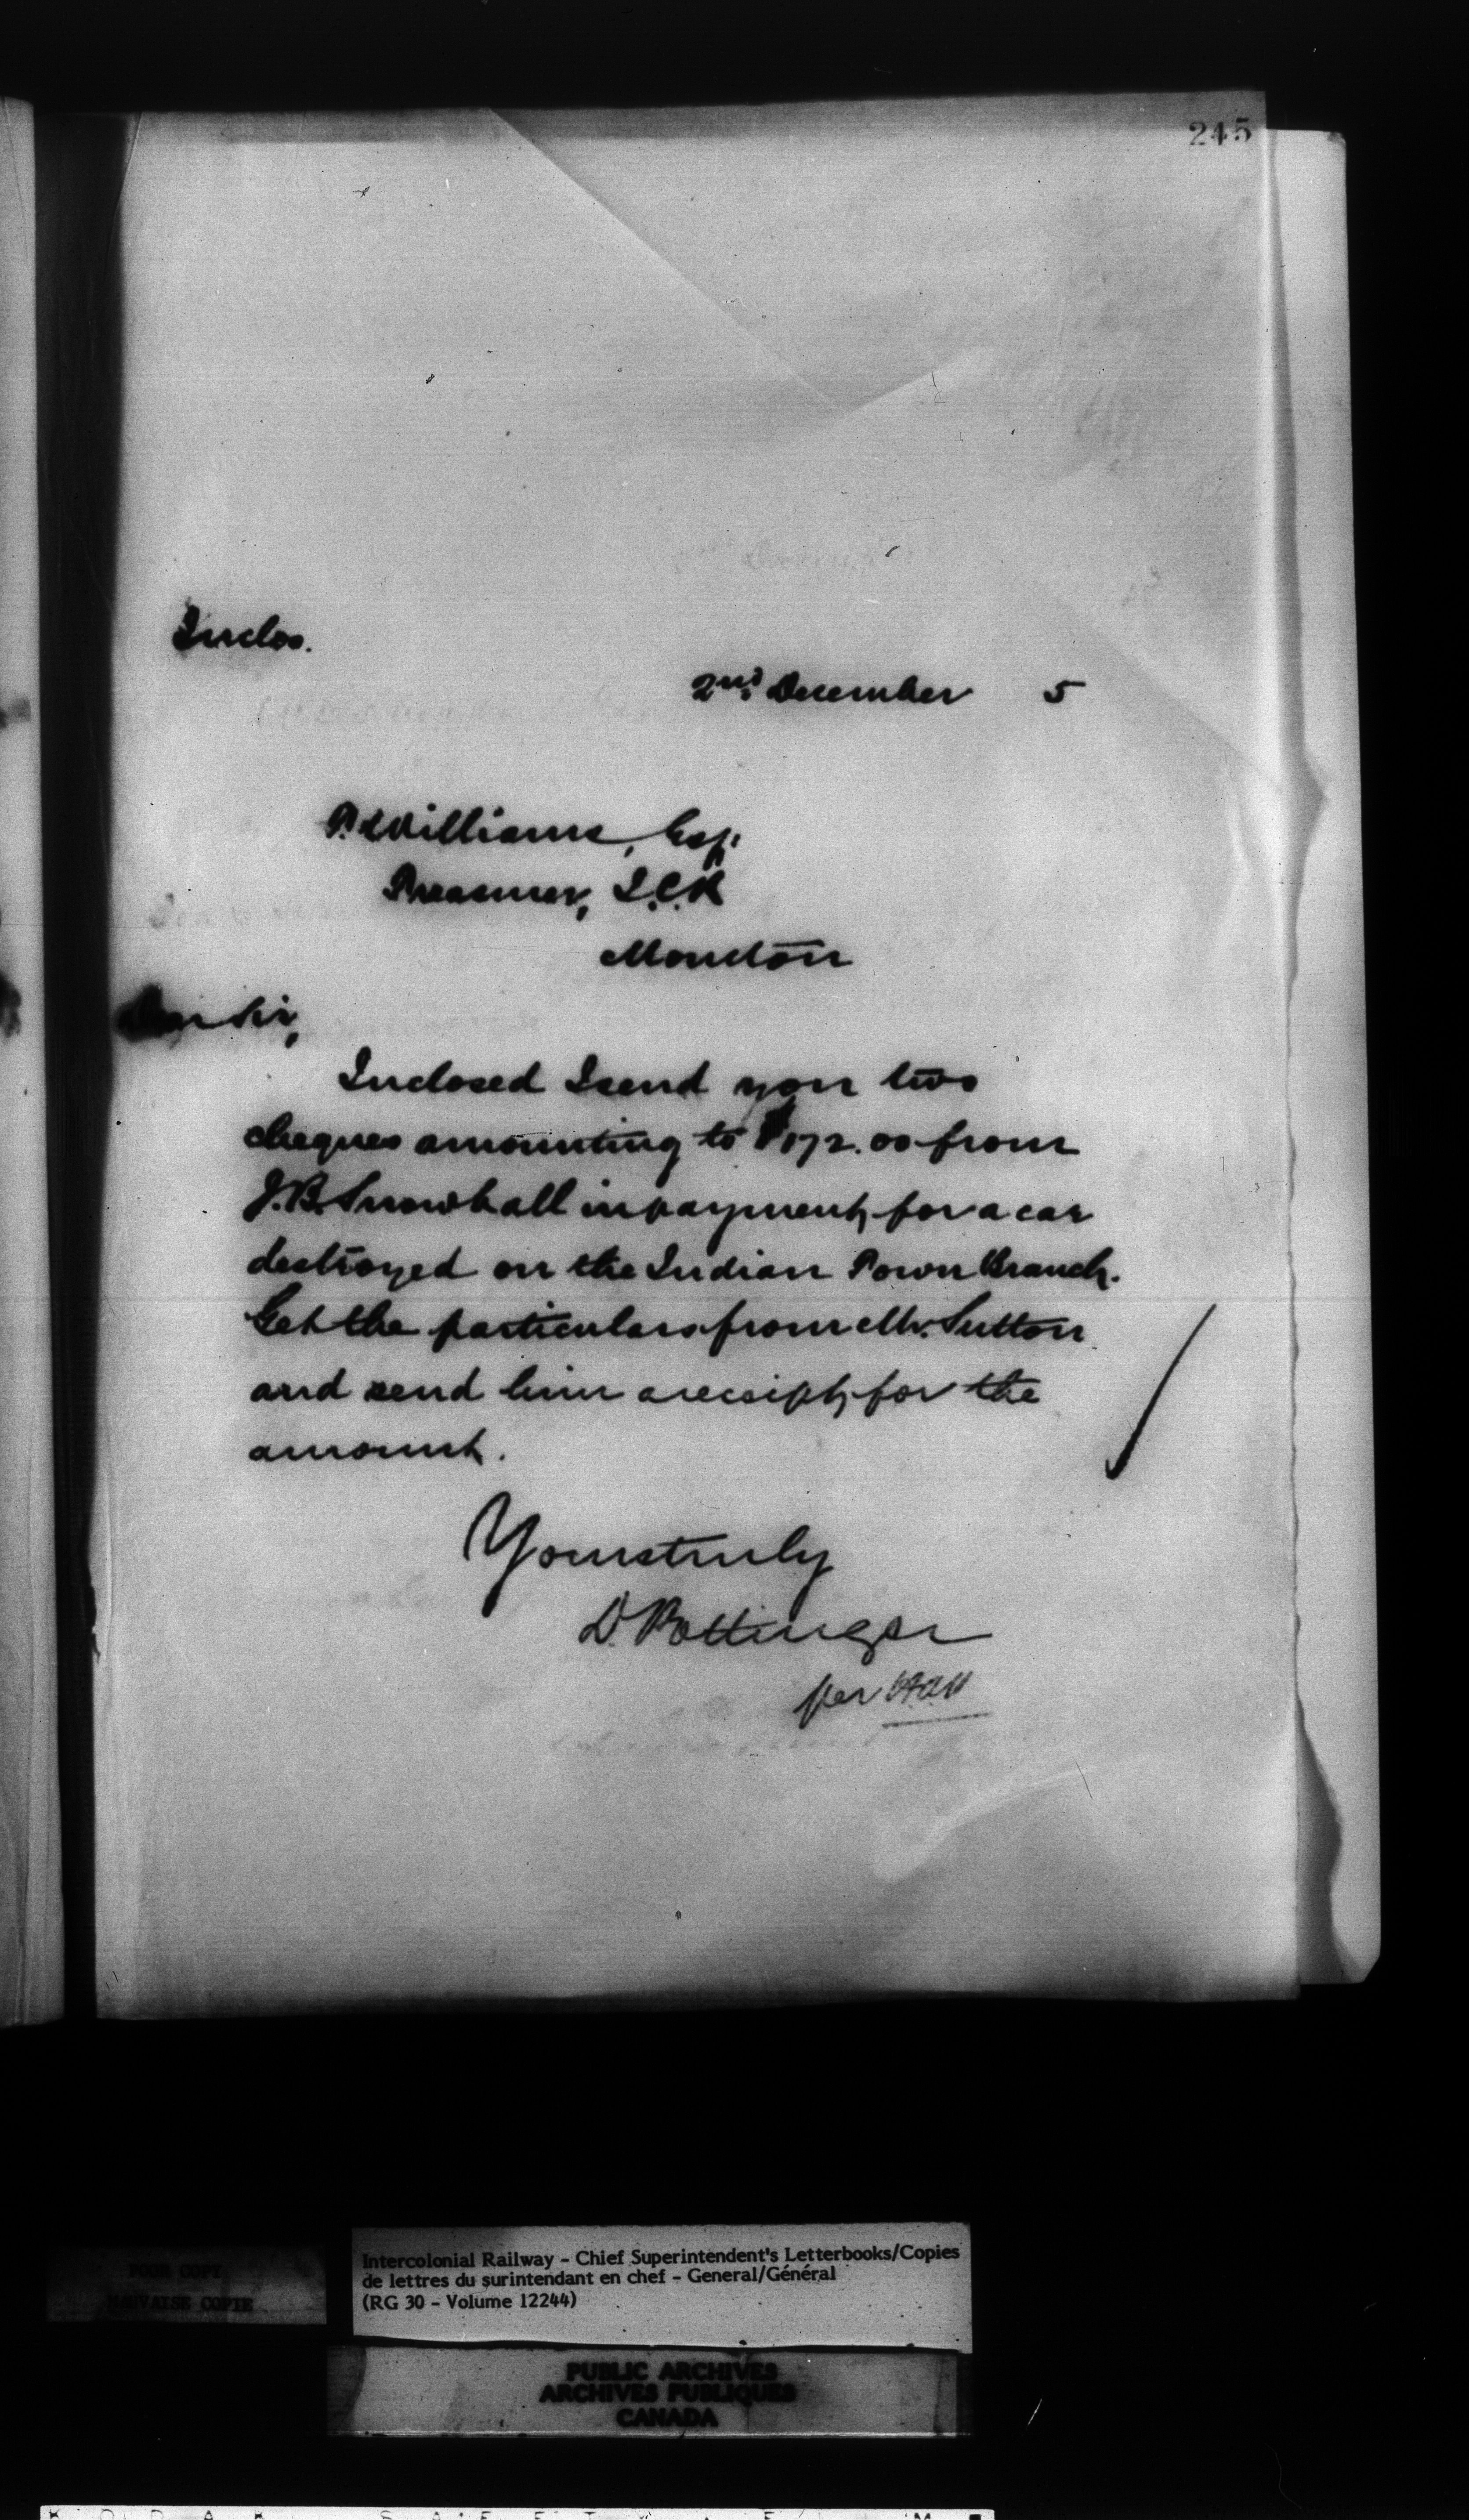 245
Inclos.
2nd December 5
T. Williams, Esq.
Treasurer, I.C.R
Moncton
Dear Sir,
Inclosed I send you two
cheques amounting to $172.00 from
J.B. Snowball in payment for a car
destroyed on the Indian Town Branch.
Get the particulars from Mr. Sutton
and send him a receipt for the
amount.
Yours truly
D. Pottinger
per
POOR COPY
MAUVAISE COPIE
Intercolonial Railway - Chief Superintendent's Letterbooks/Copies
de lettres du surintendant en chef - General/Général
(RG 30 - Volume 12244)
PUBLIC ARCHIVES
ARCHIVES PUBLIQUES
CANADA